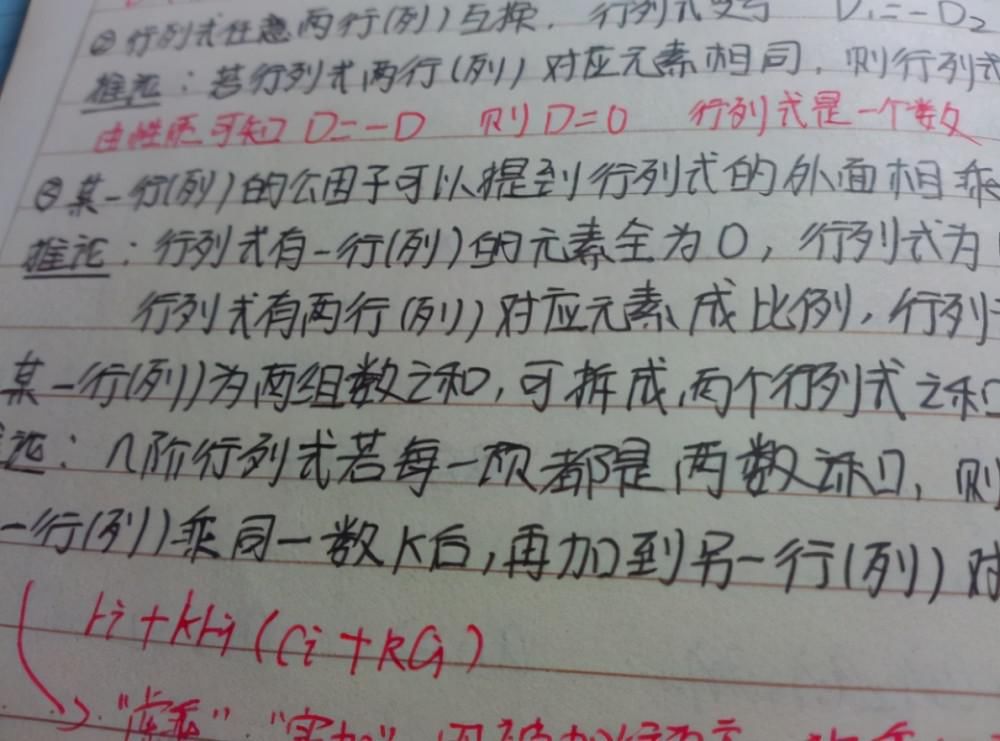 ②行列式任意两行(列)互换,行列式变号 D₁=-D₂
推论:若行列式两行(列)对应元素相同,则行列式
由性质可知 D=-D 则 D=0 行列式是一个数
③某一行(列)的公因子可以提到行列式的外面相乘
推论:行列式有一行(列)的元素全为0,行列式为
行列式有两行(列)对应元素成比例,行列
某一行(列)为两组数之和,可拆成两个行列式之和
论:n阶行列式若每一项都是两数之和,则
一行(列)乘同一数K后,再加到另一行(列)对
ri+krj(Ci+kCj)